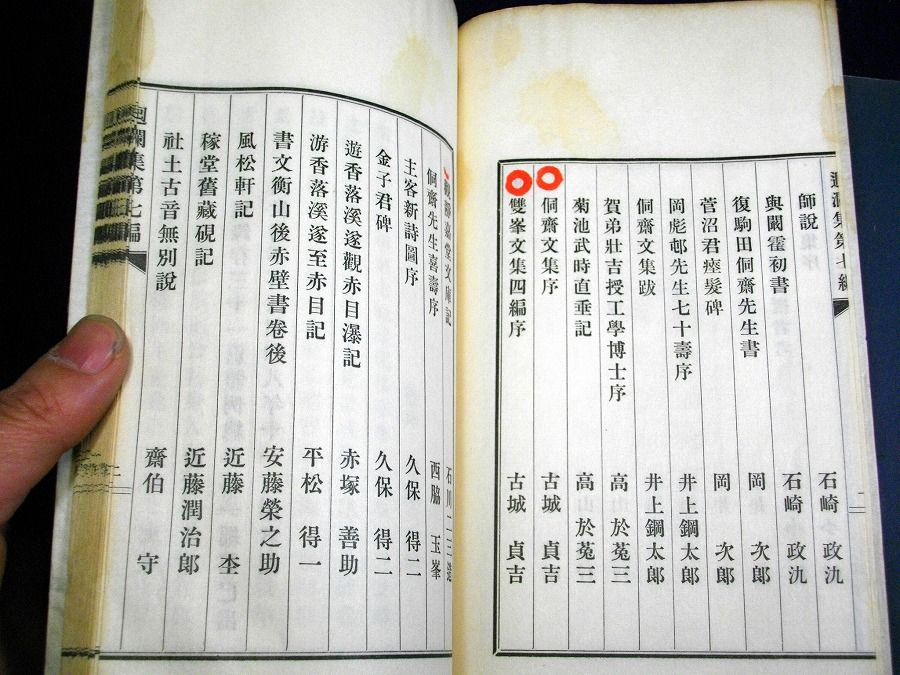 集第七編
師說 石崎 政氿
與闞霍初書 石崎 政氿
復駒田侗齋先生書 岡 次郎
菅沼君瘞髮碑 岡 次郎
岡彪邨先生七十壽序 井上鋼太郎
侗齋文集跋 井上鋼太郎
賀弟壯吉授工學博士序 高山於菟三
菊池武時直垂記 高山於菟三
侗齋文集序 古城 貞吉
雙峯文集四編序 古城 貞吉
嘉堂文庫記 石川二三造
侗齋先生喜壽序 西脇 玉峯
主客新詩圖序 久保 得二
金子君碑 久保 得二
遊香落溪遂觀赤目瀑記 赤塚 善助
游香落溪遂至赤目記 平松 得一
書文衡山後赤壁書卷後 安藤榮之助
風松軒記 近藤 杢
稼堂舊藏硯記 近藤潤治郎
社土古音無別說 齋伯 守
迴瀾集第七編
二